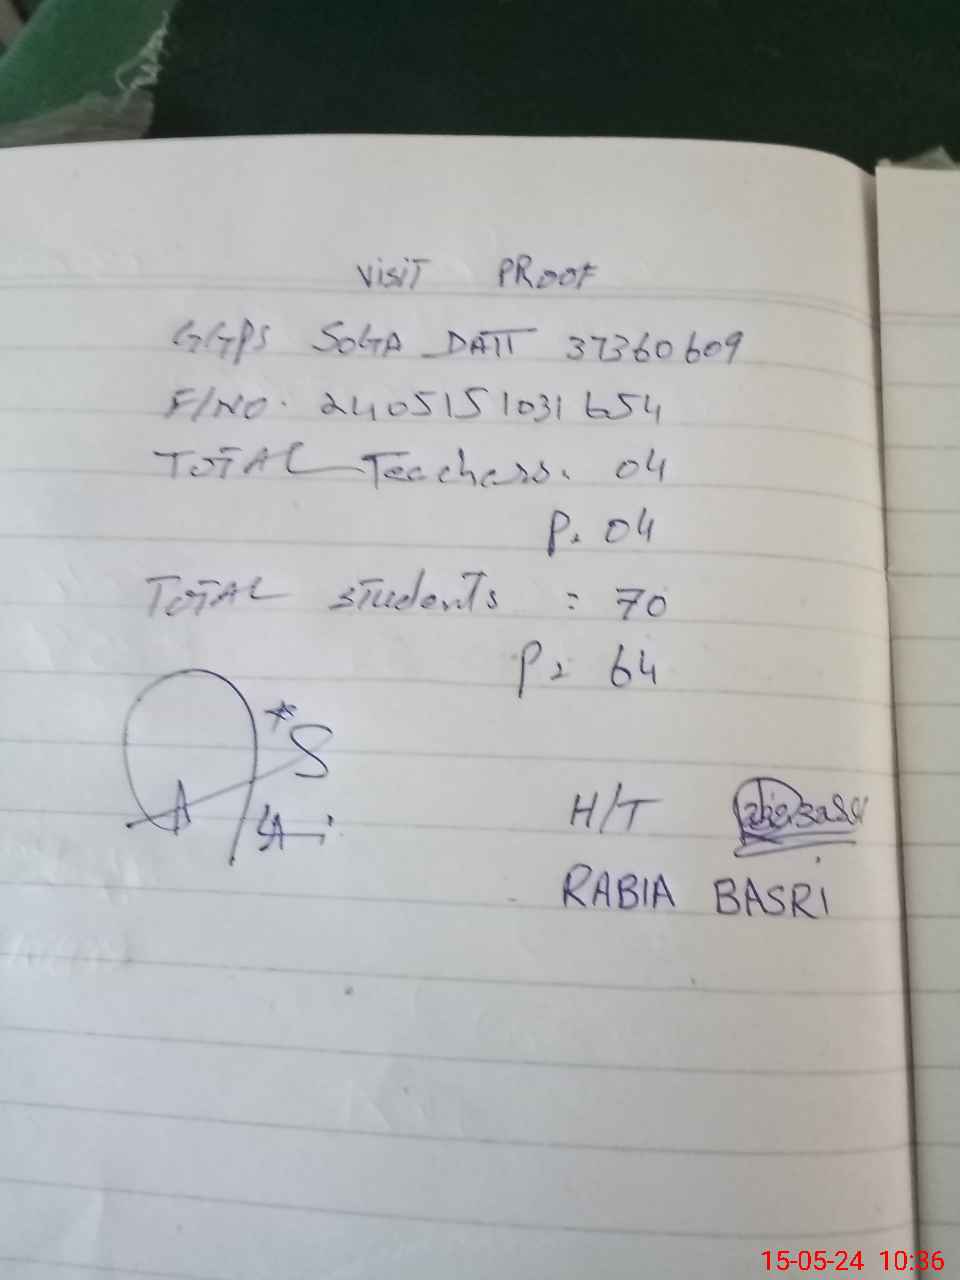 Visit PROOF
GGPS SOGA DATT 37360609
F/NO. 2405151031654
TOTAL Teachers. 04
P. 04
TOTAL students = 70
P = 64
H/T
RABIA BASRI
15-05-24 10:36